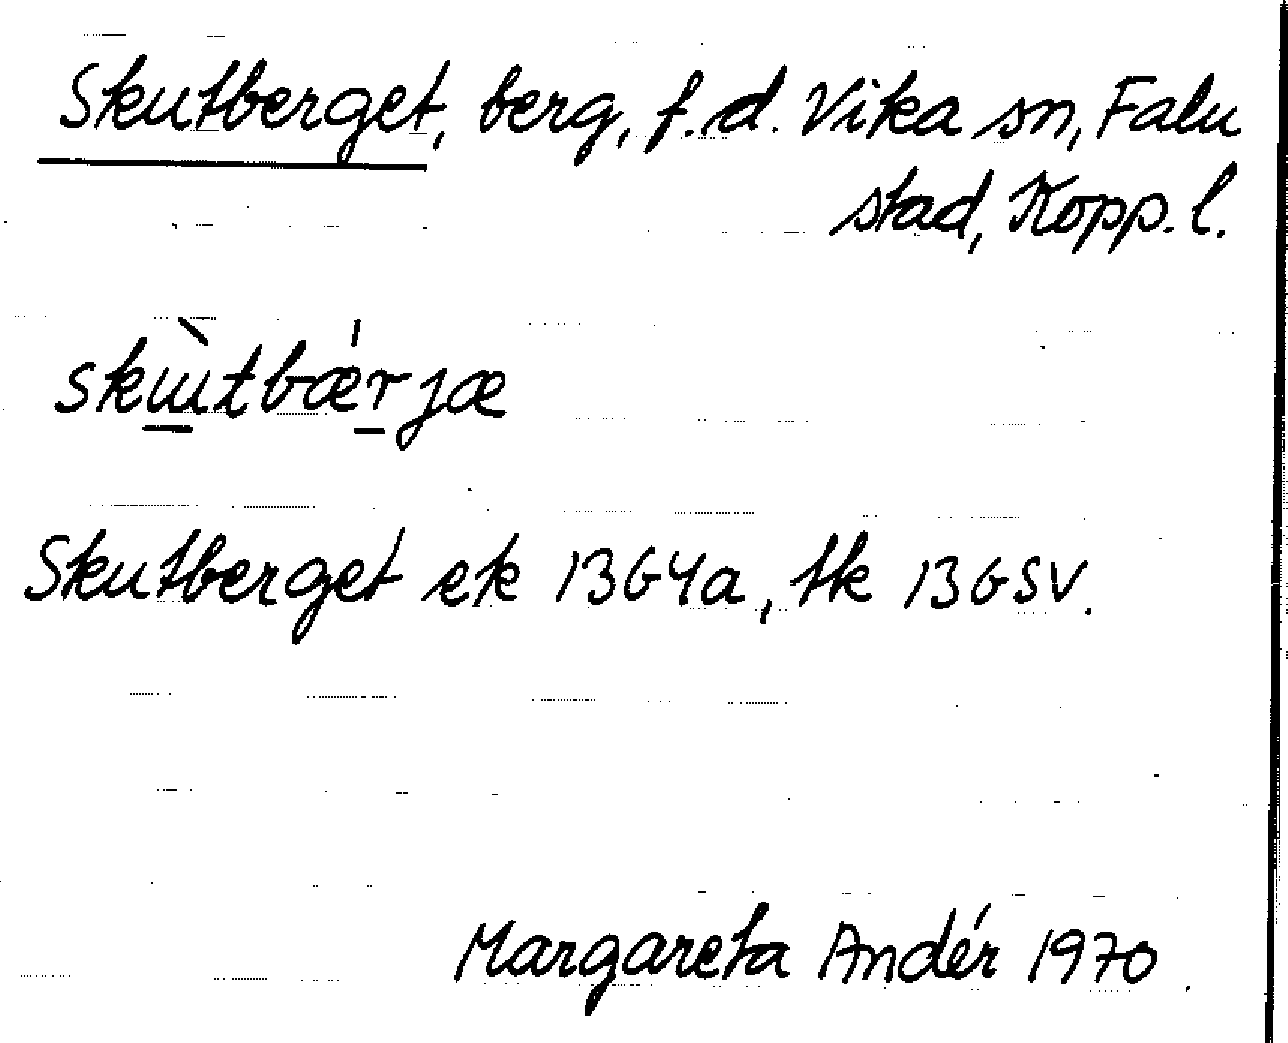 Skutberget, berg, f.d. Vika sn, Falu
stad, Kopp. l.
skɯ̀tbæ̍rjæ
Skutberget ek 13G4a, tk 13GSV.
Margareta Andér 1970.